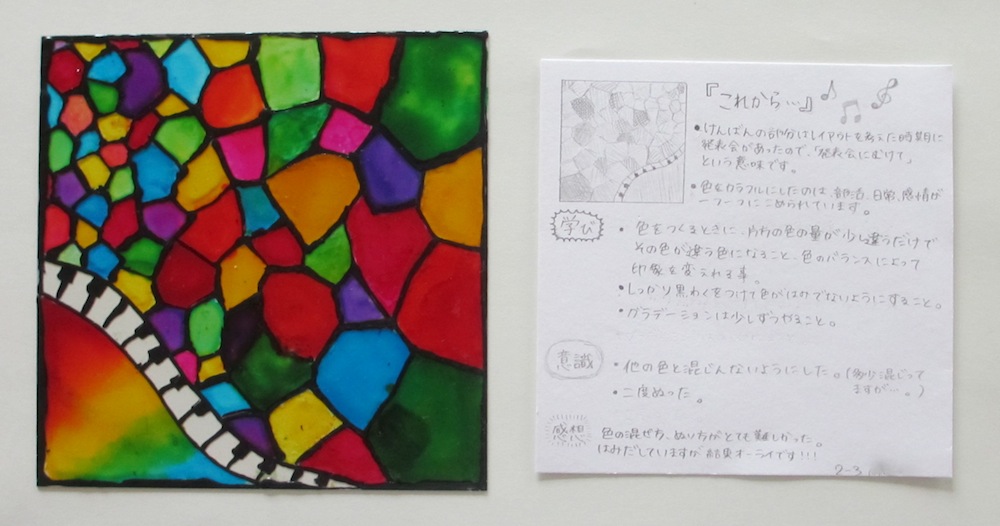 『これから…』
●けんばんの部分はレイアウトを考えた時期に
発表会があったので、「発表会にむけて」
という意味です。
●色をカラフルにしたのは、部活、日常、感情が
一つ一つにこめられています。
学び
・色をつくるときに、片方の色の量が少し違うだけで
その色が違う色になること、色のバランスによって
印象を変えれる事。
・しっかり黒わくをつけて色がはみでないようにすること。
・グラデーションは少しずつやること。
意識
・他の色と混じんないようにした。(多少混じって
ますが…。)
・二度ぬった。
感想
色の混ぜ方、ぬり方がとても難しかった。
はみだしていますが結果オーライです!!!
2-3